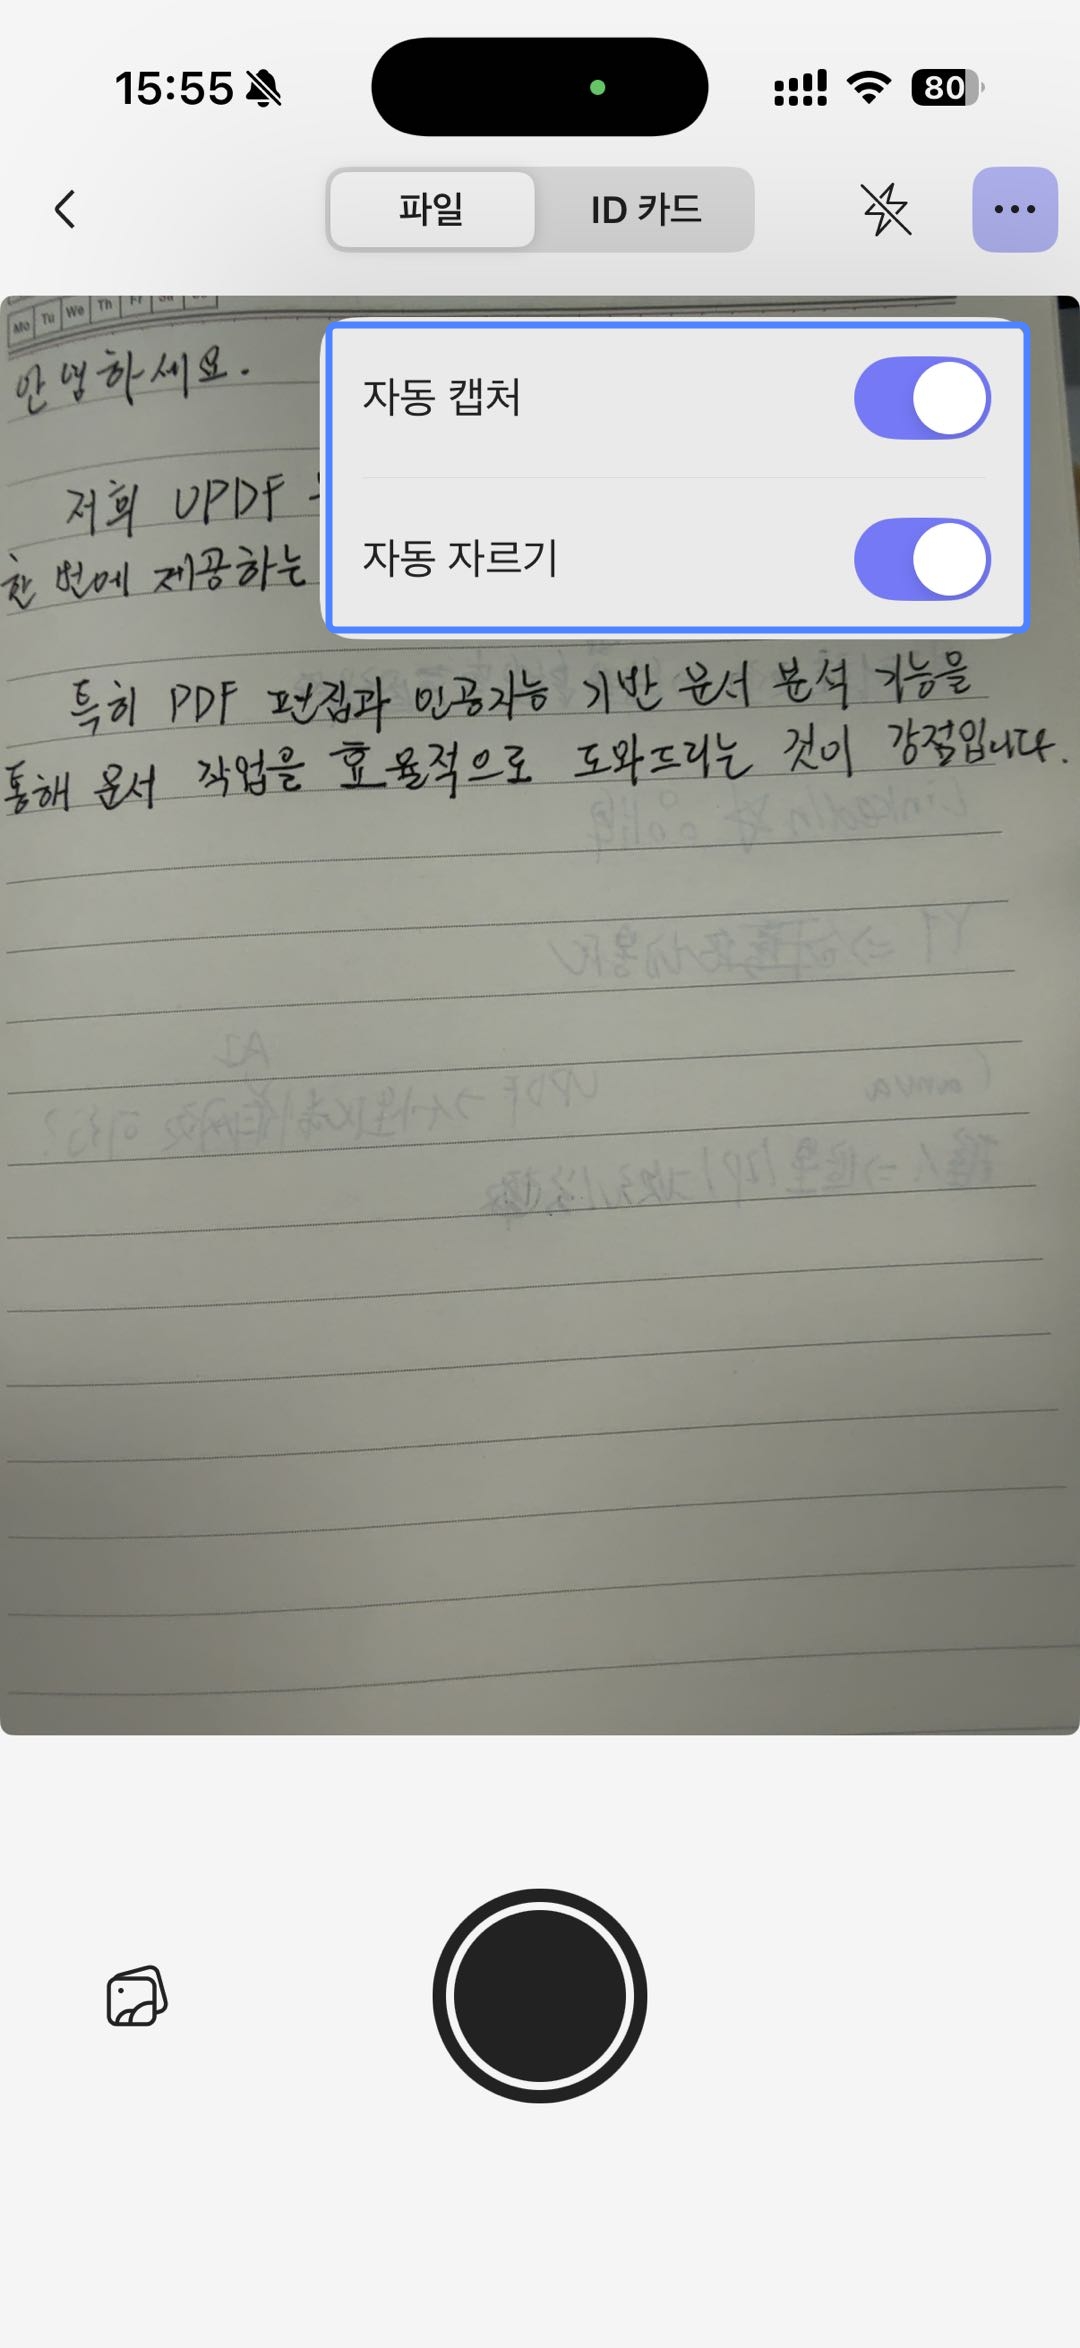 15:55
80
파일 ID 카드
Mo Tu We Th Fr Sa
자동 캡처
자동 자르기
안녕하세요.
저희 UPDF
한 번에 제공하는
특히 PDF 편집과 인공지능 기반 문서 분석 기능을
통해 문서 작업을 효율적으로 도와드리는 것이 강점입니다.
LinkedIn
Canva
UPDF